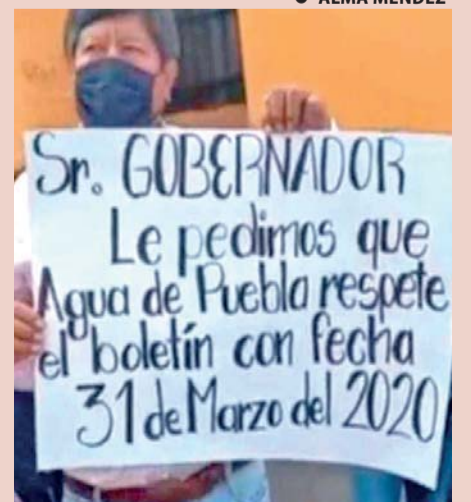 ALMA MÉNDEZ
Sr. GOBERNADOR
Le pedimos que
Agua de Puebla respete
el boletín con fecha
31 de Marzo del 2020